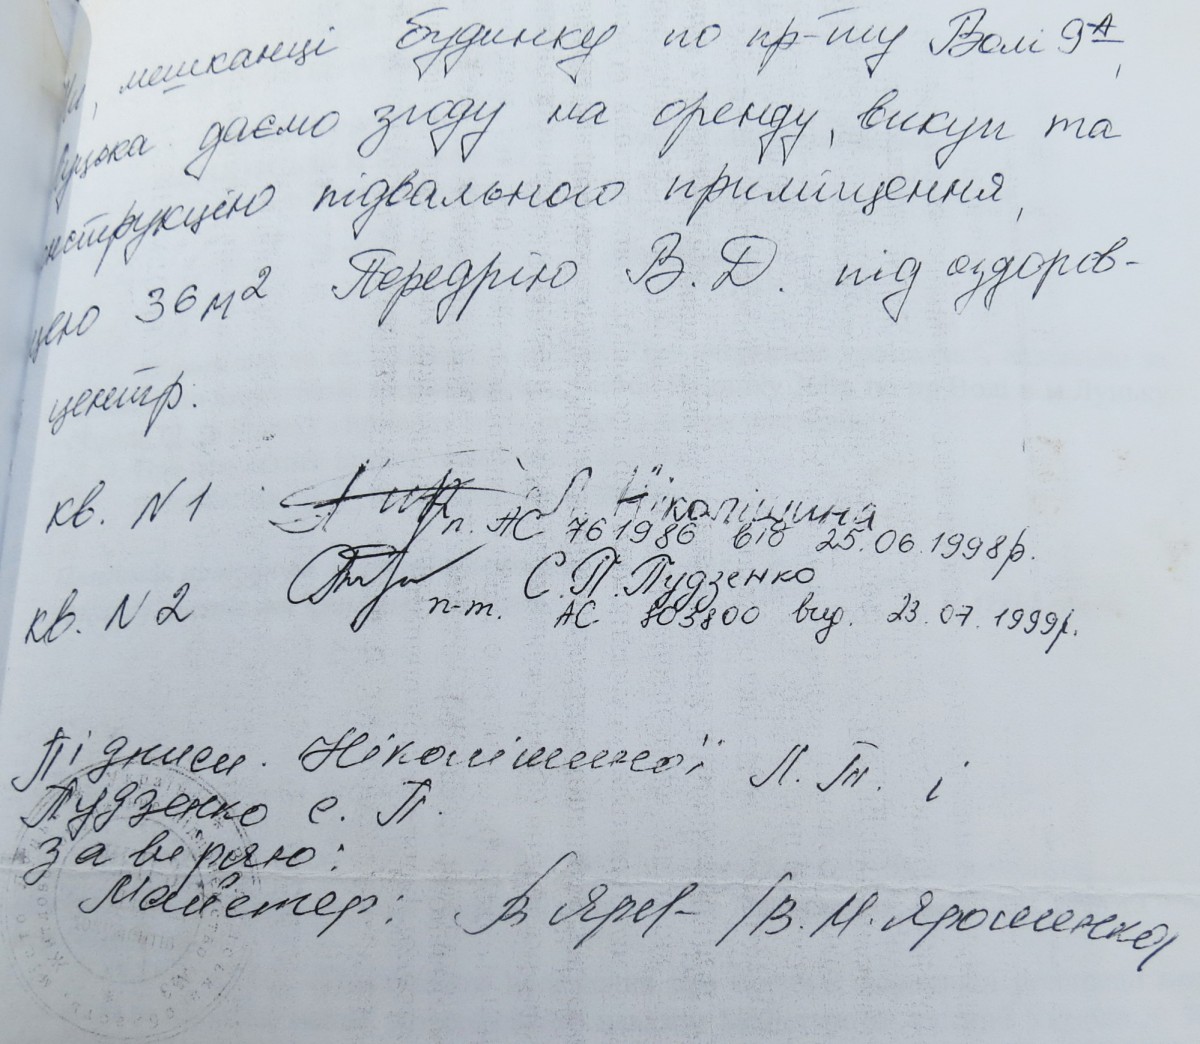 Ми, мешканці будинку по пр-ту Волі 9А,
Луцька даємо згоду на оренду, викуп та
конструкцію підвального приміщення,
щею 36 м2 Передрію В. Д. під оздоров-
центр.
кв. N 1 Л. Ніколішина
п. АС 761986 від 25.06.1998р.
кв. N 2 С.П. Пудзенко
п-т. АС 803800 вид. 23.07.1999р.
Підписи Ніколішиної Л. Т. і
Пудзенко С. П.
завіряю:
Майстер: /В. М. Ярошенко/